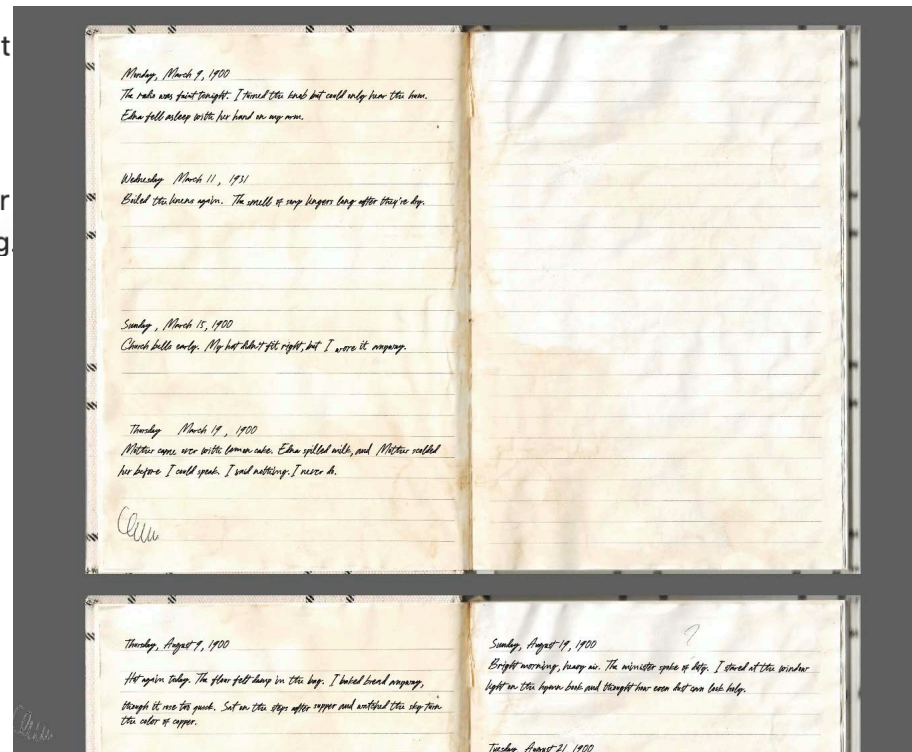 t
r
g.
Monday, March 9, 1900
The radio was faint tonight. I turned the knob but could only hear the hum.
Edna fell asleep with her hand on my arm.
Wednesday March 11, 1931
Boiled the linens again. The smell of soap lingers long after they're dry.
Sunday, March 15, 1900
Church bells early. My hat didn't fit right, but I wore it anyway.
Thursday March 19, 1900
Mother came over with lemon cake. Edna spilled milk, and Mother scolded
her before I could speak. I said nothing. I never do.
Thursday, August 9, 1900
Hot again today. The flour felt damp in the bag. I baked bread anyway,
though it rose too quick. Sat on the steps after supper and watched the sky turn
the color of copper.
Sunday, August 19, 1900
?
Bright morning, heavy air. The minister spoke of duty. I stared at the window
light on the hymn book and thought how even dust can look holy.
Tuesday, August 21, 1900